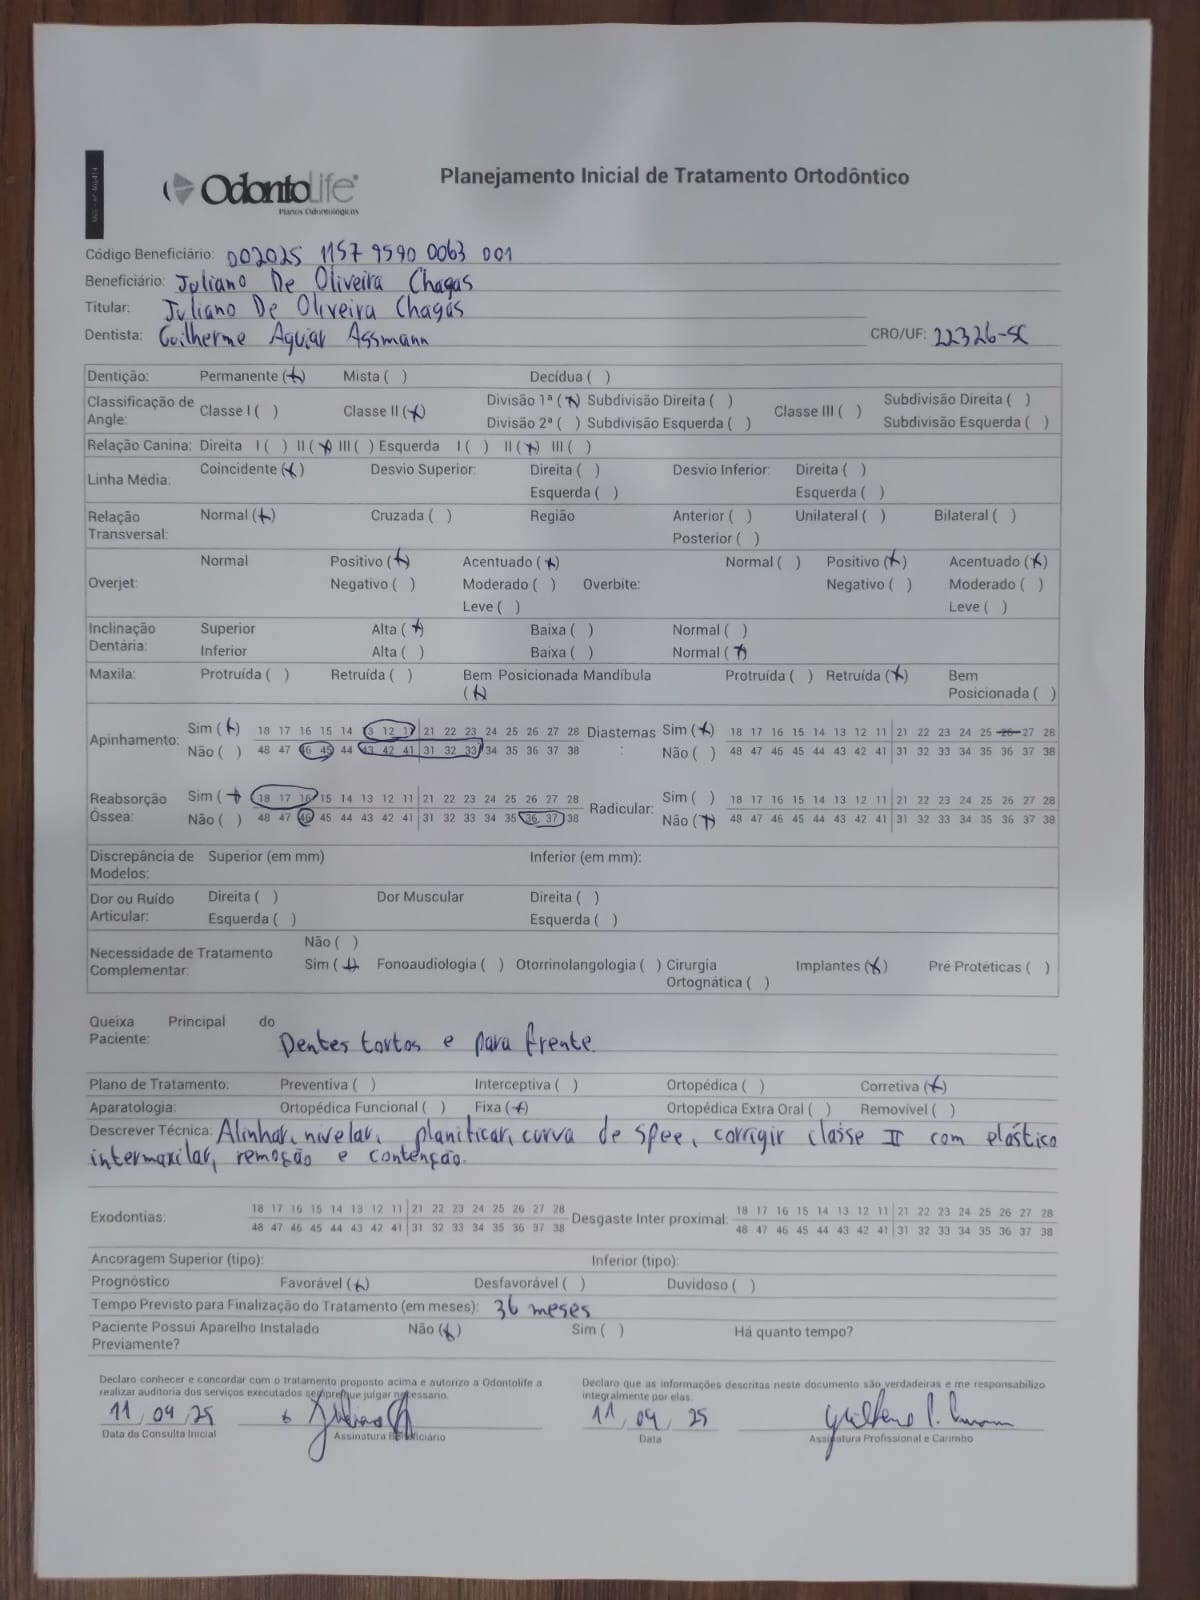 OdontoLife
Planos Odontológicos
Planejamento Inicial de Tratamento Ortodôntico
Código Beneficiário: 002025 1157 9590 0063 001
Beneficiário: Juliano De Oliveira Chagas
Titular: Juliano De Oliveira Chagas
Dentista: Guilherme Aguiar Assmann CRO/UF: 22326-SC
Dentição: Permanente (x) Mista ( ) Decídua ( )
Classificação de Angle: Classe I ( ) Classe II (x) Divisão 1ª (x) Subdivisão Direita ( ) Classe III ( ) Subdivisão Direita ( )
Divisão 2ª ( ) Subdivisão Esquerda ( ) Subdivisão Esquerda ( )
Relação Canina: Direita I ( ) II (x) III ( ) Esquerda I ( ) II (x) III ( )
Linha Média: Coincidente (x) Desvio Superior: Direita ( ) Desvio Inferior: Direita ( )
Esquerda ( ) Esquerda ( )
Relação Transversal: Normal (x) Cruzada ( ) Região Anterior ( ) Unilateral ( ) Bilateral ( )
Posterior ( )
Overjet: Normal Positivo (x) Acentuado (x) Overbite: Normal ( ) Positivo (x) Acentuado (x)
Negativo ( ) Moderado ( ) Negativo ( ) Moderado ( )
Leve ( ) Leve ( )
Inclinação Dentária: Superior Alta (x) Baixa ( ) Normal ( )
Inferior Alta ( ) Baixa ( ) Normal (x)
Maxila: Protruída ( ) Retruída ( ) Bem Posicionada (x) Mandíbula Protruída ( ) Retruída (x) Bem Posicionada ( )
Apinhamento: Sim (x) 18 17 16 15 14 13 12 11 21 22 23 24 25 26 27 28 Diastemas: Sim (x) 18 17 16 15 14 13 12 11 21 22 23 24 25 26 27 28
Não ( ) 48 47 46 45 44 43 42 41 31 32 33 34 35 36 37 38 Não ( ) 48 47 46 45 44 43 42 41 31 32 33 34 35 36 37 38
Reabsorção Óssea: Sim (x) 18 17 16 15 14 13 12 11 21 22 23 24 25 26 27 28 Radicular: Sim ( ) 18 17 16 15 14 13 12 11 21 22 23 24 25 26 27 28
Não ( ) 48 47 46 45 44 43 42 41 31 32 33 34 35 36 37 38 Não (x) 48 47 46 45 44 43 42 41 31 32 33 34 35 36 37 38
Discrepância de Modelos: Superior (em mm) Inferior (em mm):
Dor ou Ruído Articular: Direita ( ) Dor Muscular Direita ( )
Esquerda ( ) Esquerda ( )
Necessidade de Tratamento Complementar: Não ( )
Sim (x) Fonoaudiologia ( ) Otorrinolangologia ( ) Cirurgia Ortognática ( ) Implantes (x) Pré Protéticas ( )
Queixa Principal do Paciente: Dentes tortos e para frente.
Plano de Tratamento: Preventiva ( ) Interceptiva ( ) Ortopédica ( ) Corretiva (x)
Aparatologia: Ortopédica Funcional ( ) Fixa (x) Ortopédica Extra Oral ( ) Removível ( )
Descrever Técnica: Alinhar, nivelar, planificar, curva de spee, corrigir classe II com elástico
intermaxilar, remoção e contenção.
Exodontias: 18 17 16 15 14 13 12 11 21 22 23 24 25 26 27 28 Desgaste Inter proximal: 18 17 16 15 14 13 12 11 21 22 23 24 25 26 27 28
48 47 46 45 44 43 42 41 31 32 33 34 35 36 37 38 48 47 46 45 44 43 42 41 31 32 33 34 35 36 37 38
Ancoragem Superior (tipo): Inferior (tipo):
Prognóstico Favorável (x) Desfavorável ( ) Duvidoso ( )
Tempo Previsto para Finalização do Tratamento (em meses): 36 meses
Paciente Possui Aparelho Instalado Previamente? Não (x) Sim ( ) Há quanto tempo?
Declaro conhecer e concordar com o tratamento proposto acima e autorizo a Odontolife a
realizar auditoria dos serviços executados sempre que julgar necessário.
Declaro que as informações descritas neste documento são verdadeiras e me responsabilizo
integralmente por elas.
11/09/25 11/09/25
Data da Consulta Inicial Assinatura Beneficiário Data Assinatura Profissional e Carimbo